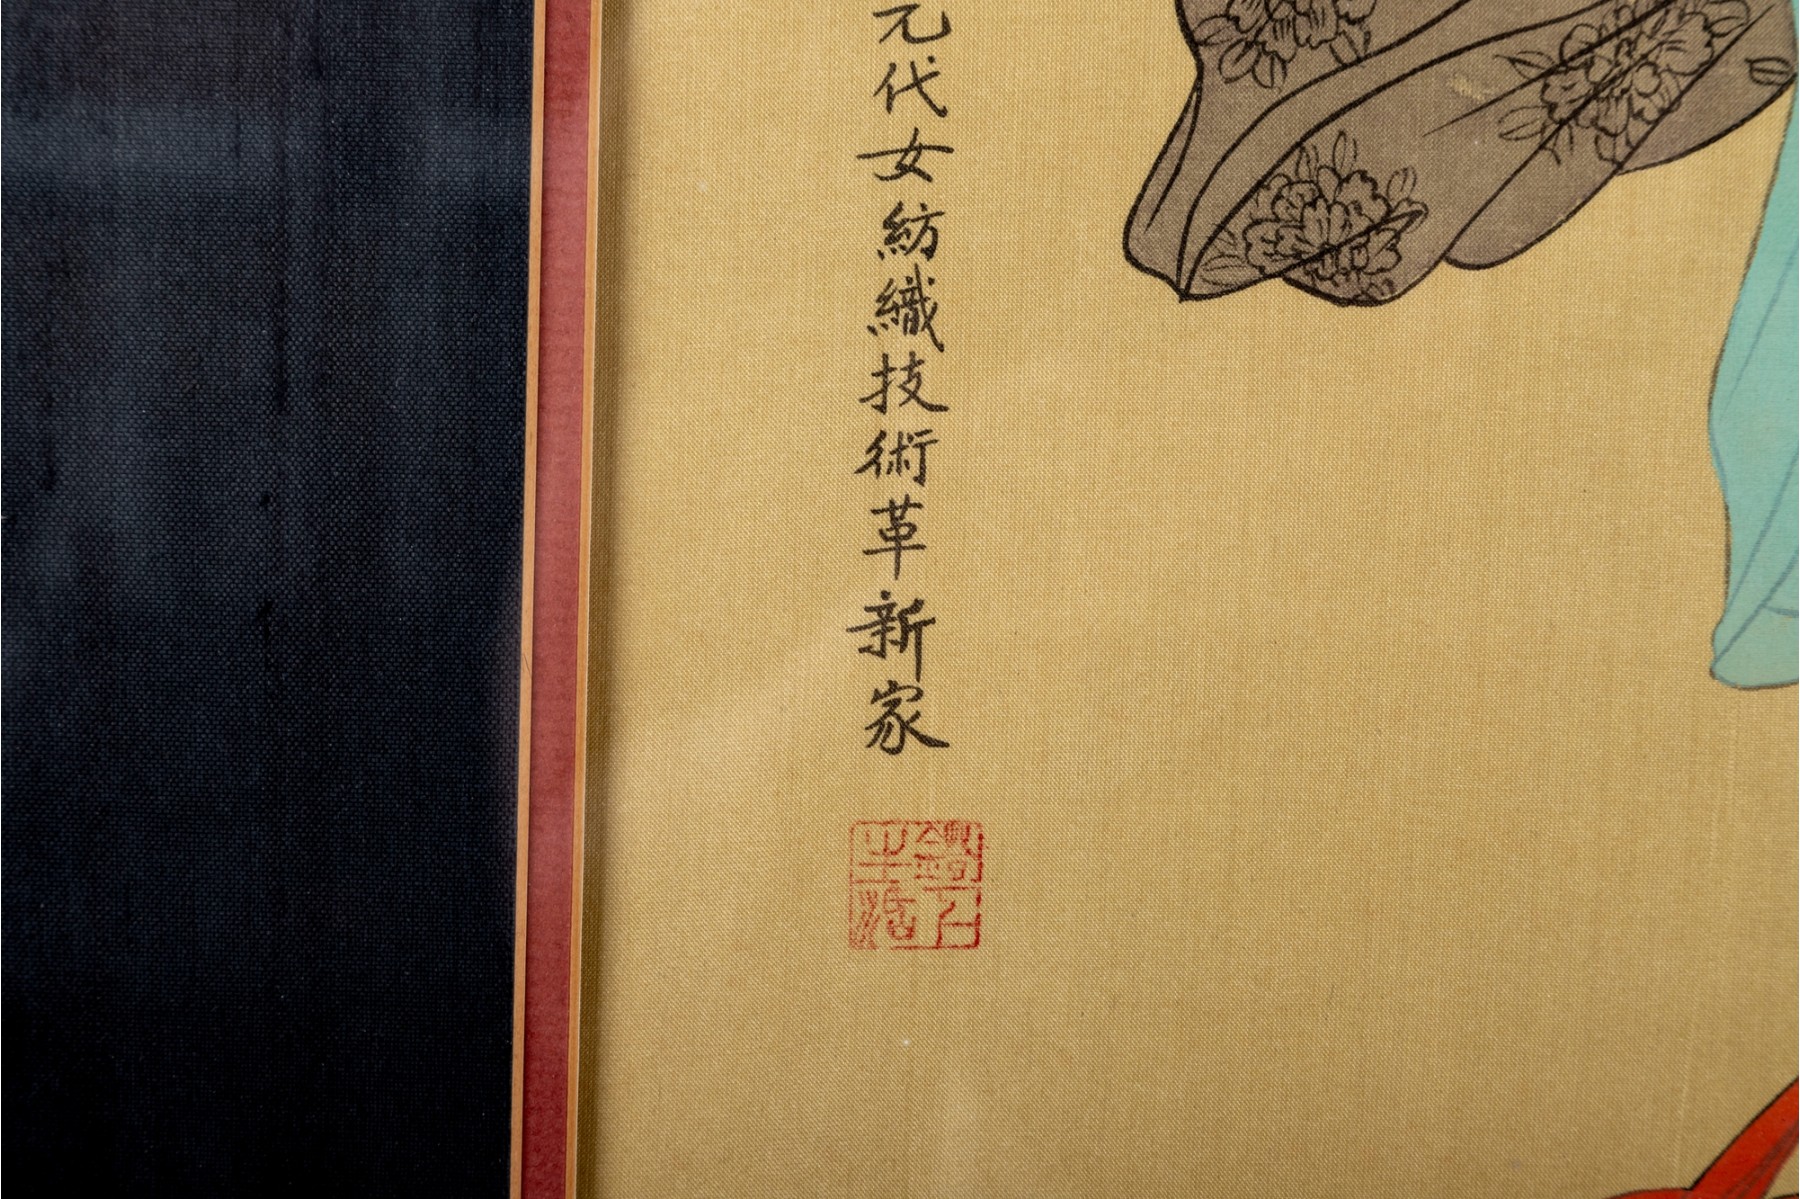 元代女紡織技術革新家